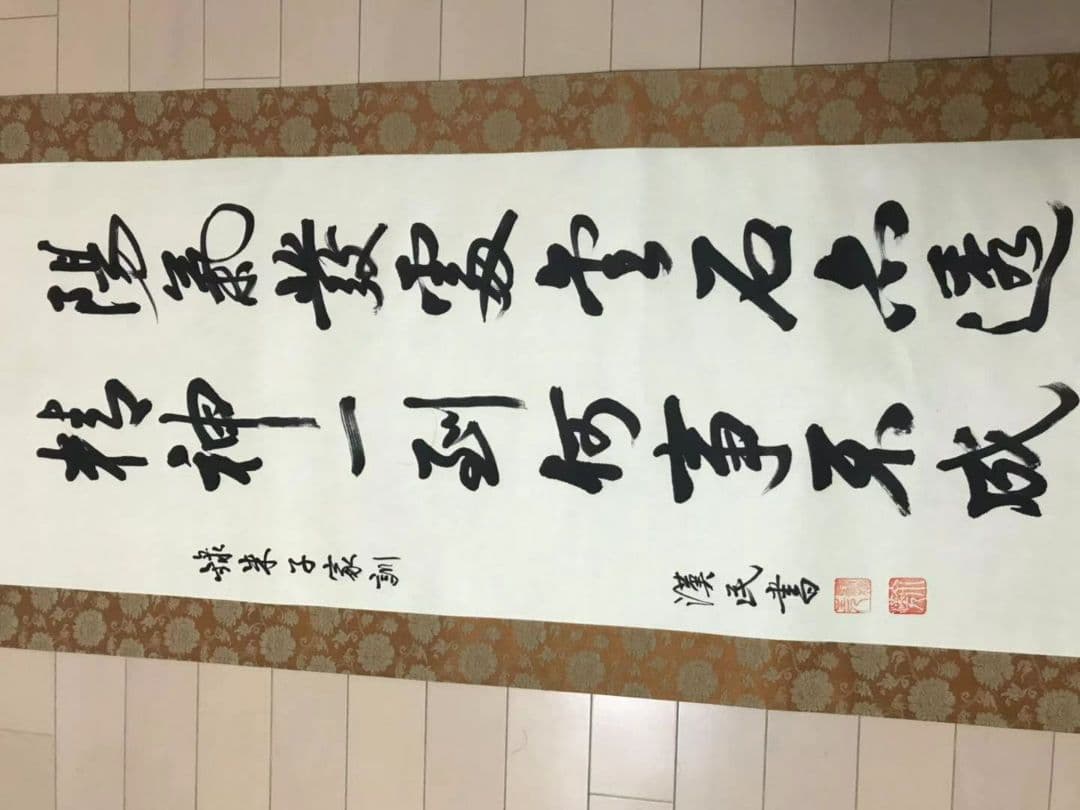 陽氣發處金石亦透
精神一到何事不成
錄朱子家訓
漢民書